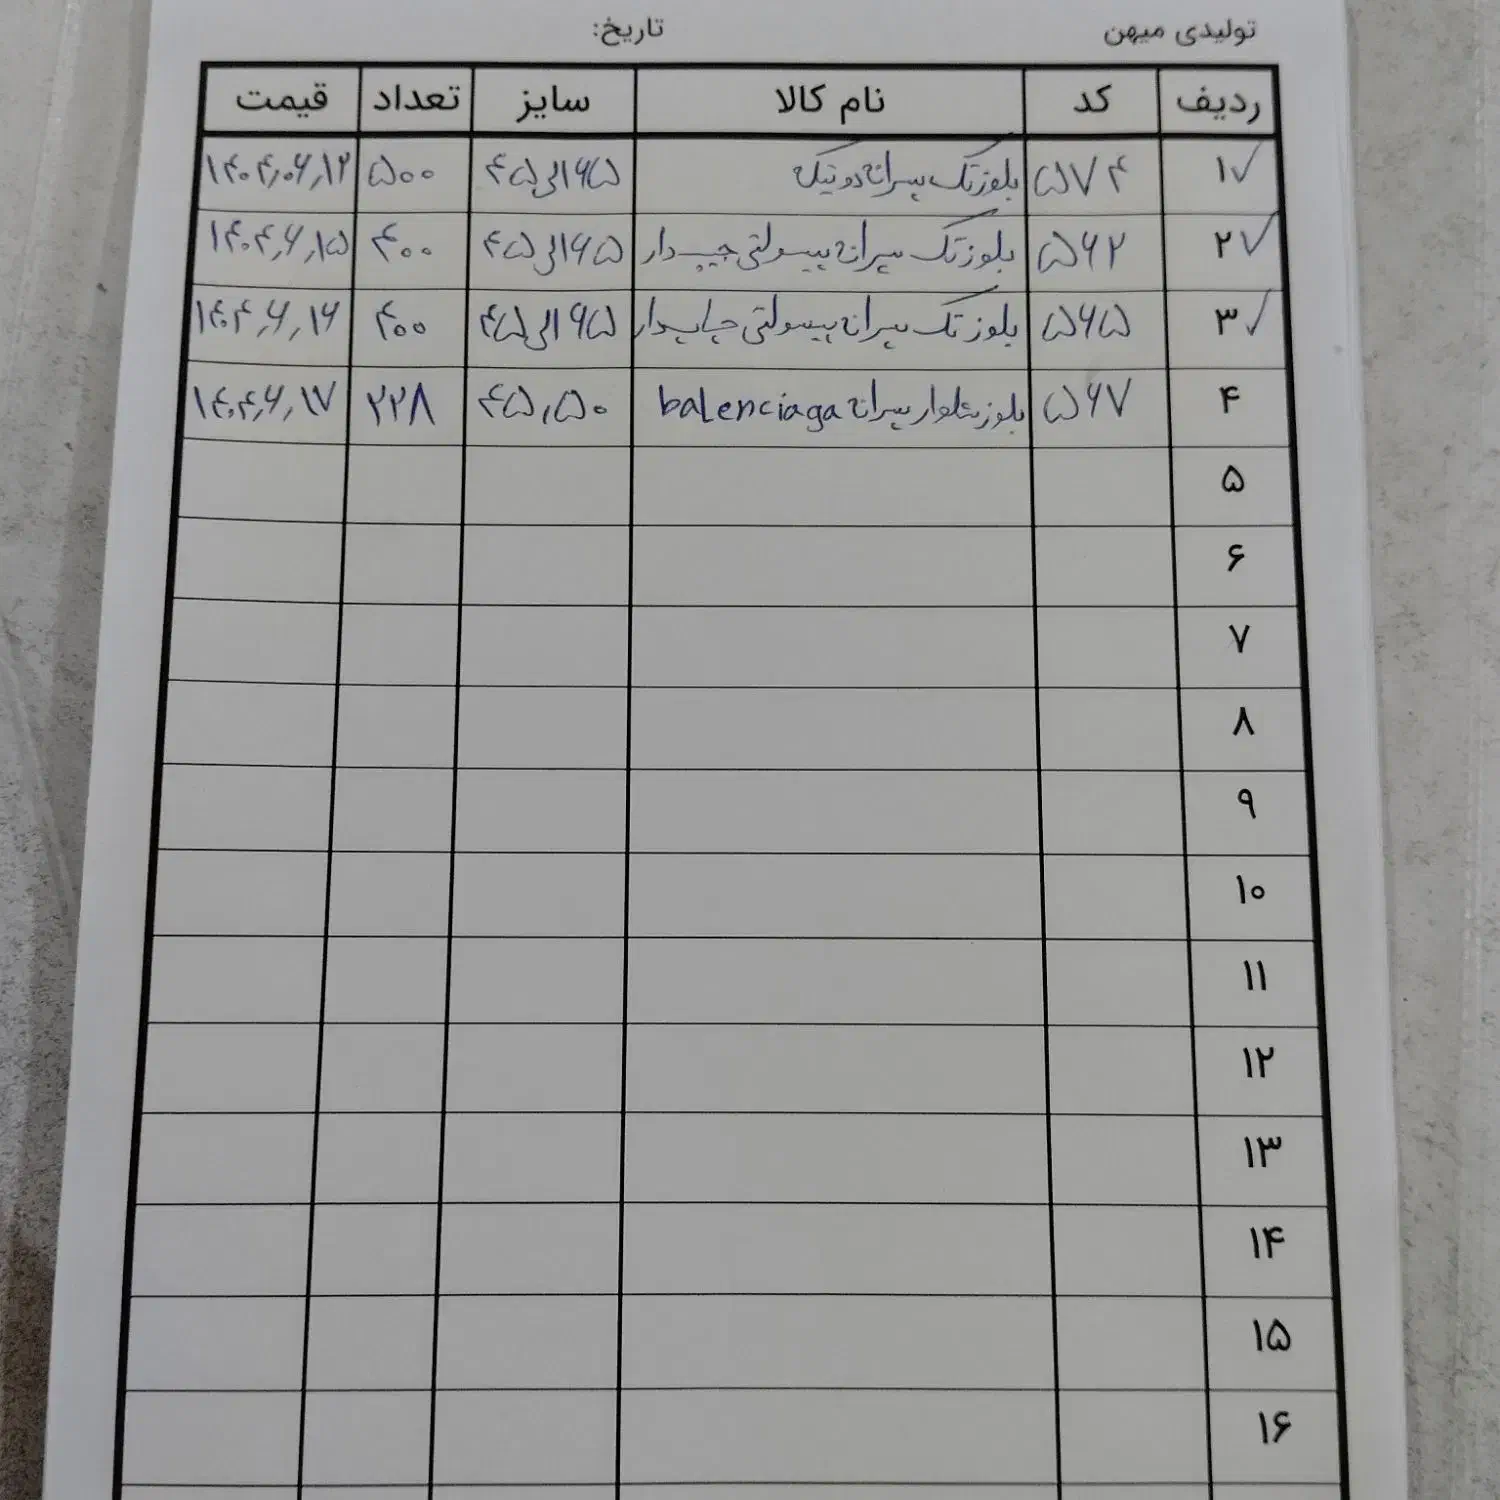 تولیدی میهن تاریخ:
ردیف کد نام کالا سایز تعداد قیمت
۱✓ ۵۷۴ بلوز تک پسرانه دوتیکه ۴۵الی۶۵ ۵۰۰ ۱۴۰۴,۰۶,۱۲
۲✓ ۵۶۲ بلوز تک پسرانه پیسولتی جیب دار ۴۵الی۶۵ ۴۰۰ ۱۴۰۴,۶,۱۵
۳✓ ۵۶۵ بلوز تک پسرانه پیسولتی چاپدار ۴۵الی۶۵ ۴۰۰ ۱۴۰۴,۶,۱۶
۴ ۵۶۷ بلوز شلوار پسرانه balenciaga ۴۵,۵۰ ۲۲۸ ۱۴۰۴,۶,۱۷
۵
۶
۷
۸
۹
۱۰
۱۱
۱۲
۱۳
۱۴
۱۵
۱۶